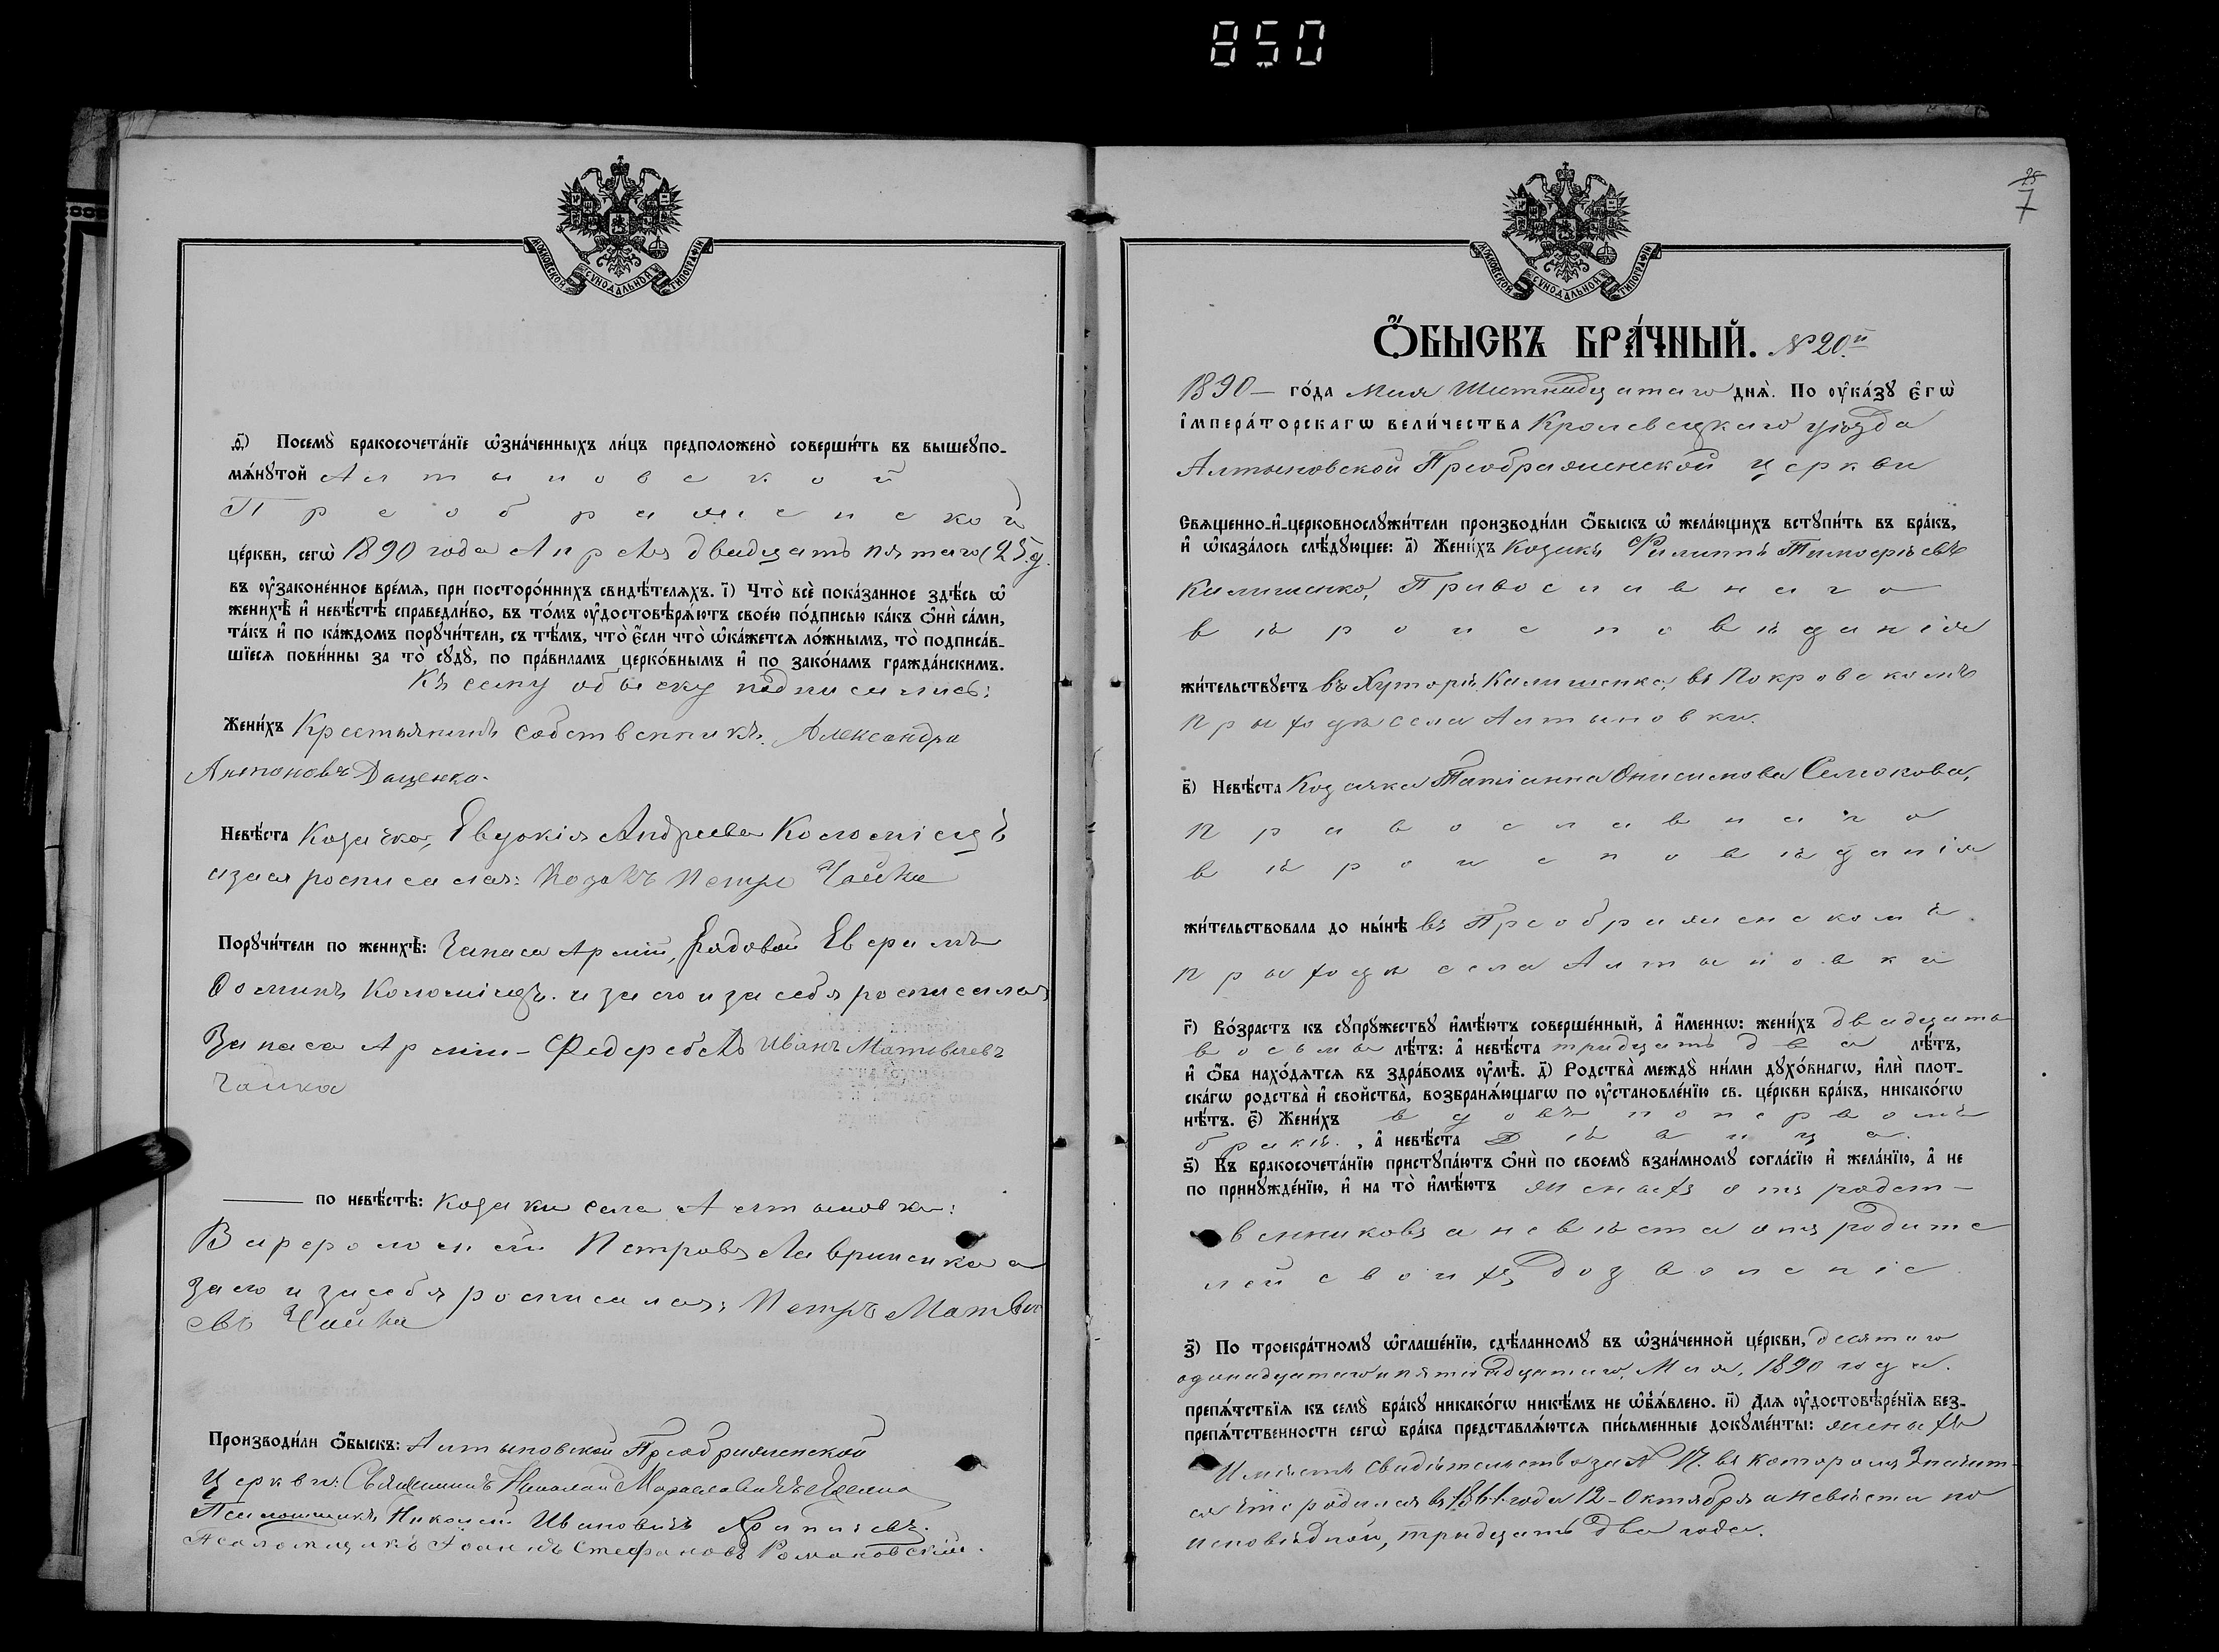 850
МОСКОВСКОЙ СУНОДАЛЬНОЙ ТИПОГРАФІИ
д҃) Посемꙋ̀ бракосочета́нїе ѡ҆зна́ченныхъ ли́цъ предположено̀ соверши́ть въ вышеꙋпо-
мѧ́нꙋтой Алтыновской
Преображенской
це́ркви, сегѡ̀ 1890 года Апрѣля двадцать пятаго (25 д.
въ ᲂу҆законе́нное вре́мѧ, при посторо́ннихъ свидѣ́телѧхъ. і҃) Что̀ всѐ пока́занное здѣ́сь ѡ҆
женихѣ̀ и҆ невѣ́стѣ справедли́во, въ то́мъ ᲂу҆достовѣрѧ́ютъ свое́ю по́дписью ка́къ ѻ҆нѝ са́ми,
та́къ и҆ по ка́ждомъ порꙋчи́тели, съ тѣ́мъ, что̀ є҆́сли что̀ ѡ҆ка́жетсѧ ло́жнымъ, то̀ подписа́в-
шїесѧ пови́нны за то̀ сꙋдꙋ̀, по пра́виламъ церко́внымъ и҆ по зако́намъ гражда́нскимъ.
Къ сему обыску подписались:
Жени́хъ Крестьянинъ собственникъ Александра
Антоновъ Даценко.
Невѣ́ста Козачка, Евдокія Андреева Коломіецъ
а за ея росписался: Козакъ Петръ Чайка
Порꙋчи́тели по женихѣ̀: Запаса Арміи, Рядовой
Ѳоминъ Коломіецъ. а за его и за себя росписался
Запаса Арміи - Иванъ Матвѣевъ
Чайка
по невѣ́стѣ: Козаки села Алтыновки:
Варфоломей Петровъ Лавриненко а
за его и за себя росписался: Петръ Матвѣ
евъ Чайка
Производи́ли ѻ҆́быскъ: Алтыновской Преображенской
Церкви: Священникъ Николай
Псаломщикъ Николай Ивановичъ
Псаломщикъ Іоаннъ Стефановъ Романовскій.
25
7
МОСКОВСКОЙ СУНОДАЛЬНОЙ ТИПОГРАФІИ
Ѻ҆́БЫСКЪ БРА́ЧНЫЙ. № 20.й
1890 – го́да Мая Шестнадцатаго днѧ̀. По ᲂу҆ка́зꙋ є҆гѡ̀
і҆мпера́торскагѡ вели́чества Кролевецкаго уѣзда
Алтыновской Преображенской церкви
Свѧщенно-и҆-церковнослꙋжи́тели производи́ли ѻ҆́быскъ ѡ҆ жела́ющихъ встꙋпи́ть въ бра́къ,
и҆ ѡ҆каза́лось слѣ́дꙋющее: а҃) Жени́хъ Козакъ Филиппъ Тимофѣевъ
Калишенко, Православнаго
вѣроисповѣданія
жи́тельствꙋетъ въ Хуторѣ Калишенка, въ Покровскомъ
приходѣ села Алтыновки.
в҃) Невѣ́ста Козачка Татіанна Онисимова Селюкова,
православнаго
вѣроисповѣданія
жи́тельствовала до ны́нѣ въ Преображенскомъ
приходѣ села Алтыновки
г҃) Во́зрастъ къ сꙋпрꙋ́жествꙋ и҆мѣ́ютъ соверше́нный, а҆ и҆́меннѡ: жени́хъ двадцать
восьмь лѣ́тъ: а҆ невѣ́ста тридцать два лѣ́тъ,
и҆ ѻ҆́ба нахо́дѧтсѧ въ здра́вомъ ᲂу҆мѣ̀. д҃) Родства̀ междꙋ̀ ни́ми дꙋхо́внагѡ, и҆лѝ плот-
ска́гѡ родства̀ и҆ сво́йства̀, возбранѧ́ющагѡ по ᲂу҆становле́нїю св. це́ркви бра́къ, никако́гѡ
нѣ́тъ. є҃) Жени́хъ вдовъ поперьвомъ
бракѣ., а҆ невѣ́ста Дѣвица.
ѕ҃) Къ бракосочета́нїю пристꙋпа́ютъ ѻ҆нѝ по своемꙋ̀ взаи́мномꙋ согла́сїю и҆ жела́нїю, а҆ не
по принꙋжде́нїю, и҆ на то̀ и҆мѣ́ютъ женихъ отъ родст-
венниковъ а невѣста отъ родите
лей своихъ дозволеніе
з҃) По троекра́тномꙋ ѡ҆глаше́нїю, сдѣ́ланномꙋ въ ѡ҆зна́ченной це́ркви, десятаго
одинадцатаго и пятнадцатаго, Мая, 1890 года.
препѧ́тствїѧ къ семꙋ̀ бра́кꙋ никако́гѡ никѣ́мъ не ѡ҆б̾ѧ́влено. и҃) Длѧ ᲂу҆достовѣре́нїѧ без-
препѧ́тственности сегѡ̀ бра́ка представлѧ́ютсѧ пи́сьменные докꙋме́нты: женихъ
имѣетъ Свидѣтельство за № въ которомъ Значит-
ся что родился въ 1861 года 12 - Октября а невѣста по
исповѣдной, тридцать два года.